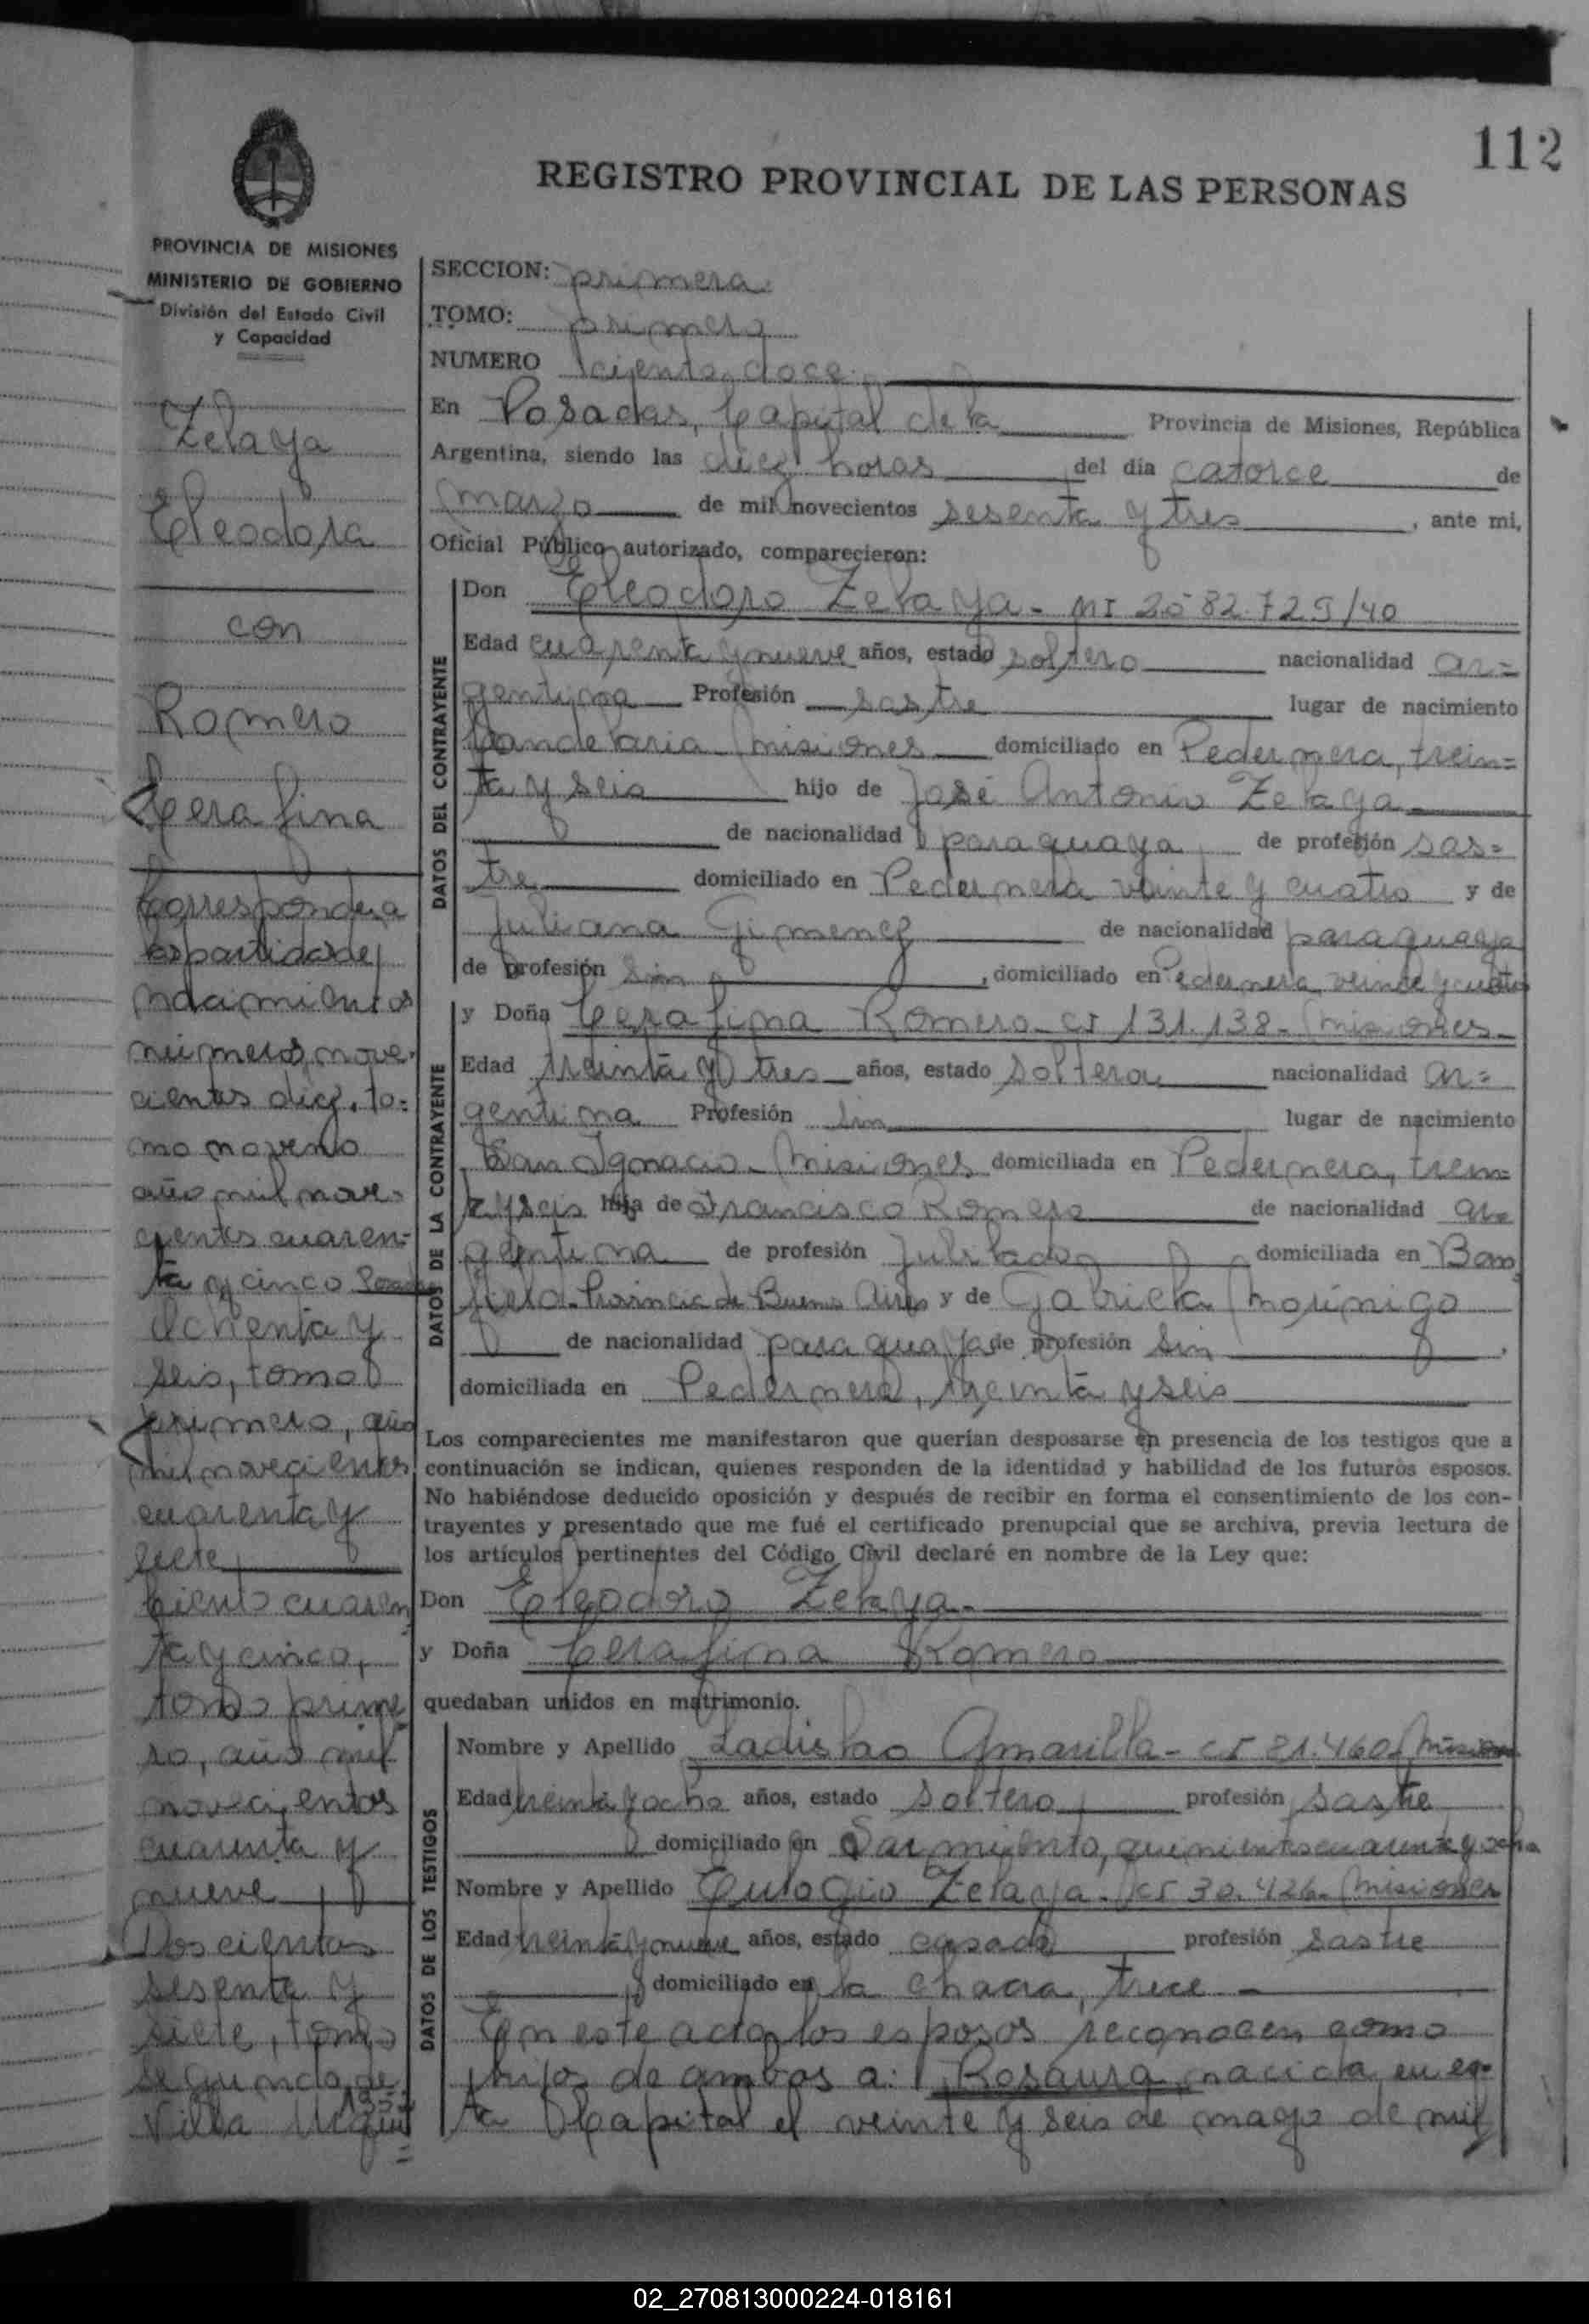 112
REGISTRO PROVINCIAL DE LAS PERSONAS
PROVINCIA DE MISIONES
MINISTERIO DE GOBIERNO
División del Estado Civil
y Capacidad
Zelaya
Eleodora
con
Romero
Cerafina
Corresponden a
las partidas de
nacimientos
números nove-
cientos diez, to-
mo noveno
año mil nove-
cientos cuaren-
ta y cinco
Ochenta y
seis, tomo
primero, año
mil novecientos
cuarenta y
siete
Ciento cuaren
ta y cinco,
tomo prime
ro, año mil
novecientos
cuarenta y
nueve
Doscientos
sesenta y
siete, tomo
segundo de
Villa Urqui
SECCION: primera
TOMO: primero
NUMERO ciento doce
En Posadas, Capital de la Provincia de Misiones, República
Argentina, siendo las diez horas del día catorce de
marzo de mil novecientos sesenta y tres, ante mi,
Oficial Público autorizado, comparecieron:
DATOS DEL CONTRAYENTE
Don Eleodoro Zelaya - MI 2582.725/40
Edad cuarenta y nueve años, estado soltero nacionalidad ar=
gentina Profesión sastre lugar de nacimiento
Candelaria Misiones domiciliado en Pedernera, trein=
ta y seis hijo de José Antonio Zelaya
de nacionalidad paraguaya de profesión sas=
tre domiciliado en Pedernera veinte y cuatro y de
Juliana Gimenez de nacionalidad paraguaya
de profesión sin, domiciliado en Pedernera, veinte y cuatro
DATOS DE LA CONTRAYENTE
y Doña Cerafina Romero - CI 131.138 - Misiones
Edad treinta y tres años, estado soltera nacionalidad ar=
gentina Profesión sin lugar de nacimiento
San Ignacio - Misiones domiciliada en Pedernera, trein=
ta y seis hija de Francisco Romero de nacionalidad ar=
gentina de profesión Jubilado domiciliada en Ban
field - Provincia de Buenos Aires y de Gabriela Morínigo
de nacionalidad paraguaya de profesión sin,
domiciliada en Pedernera, treinta y seis
Los comparecientes me manifestaron que querían desposarse en presencia de los testigos que a
continuación se indican, quienes responden de la identidad y habilidad de los futuros esposos.
No habiéndose deducido oposición y después de recibir en forma el consentimiento de los con-
trayentes y presentado que me fué el certificado prenupcial que se archiva, previa lectura de
los artículos pertinentes del Código Civil declaré en nombre de la Ley que:
Don Eleodoro Zelaya
y Doña Cerafina Romero
quedaban unidos en matrimonio.
DATOS DE LOS TESTIGOS
Nombre y Apellido Ladislao Amarilla - CI 21.460 - Misiones
Edad treinta y ocho años, estado soltero profesión sastre
domiciliado en Sarmiento, quinientos cuarenta y ocho
Nombre y Apellido Eulogio Zelaya. CI 30.426. Misiones
Edad treinta y nueve años, estado casado profesión sastre
domiciliado en la chacra, trece
En este acto los esposos reconocen como
hijos de ambos a: Rosaura, nacida en es=
ta Capital el veinte y seis de mayo de mil
02_270813000224-018161